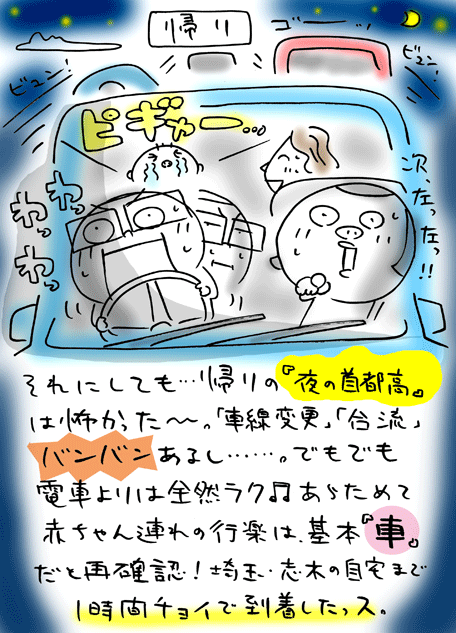 帰り
ゴーッ
ビュン!
ビュン!
ピギャー…
わっ
わっ
わっ
次、左っ左っ!!
それにしても…帰りの『夜の首都高』
は怖かった〜。「車線変更」「合流」
バンバンあるし……。でもでも
電車よりは全然ラク♫あらためて
赤ちゃん連れの行楽は、基本『車』
だと再確認!埼玉・志木の自宅まで
1時間チョイで到着したっス。